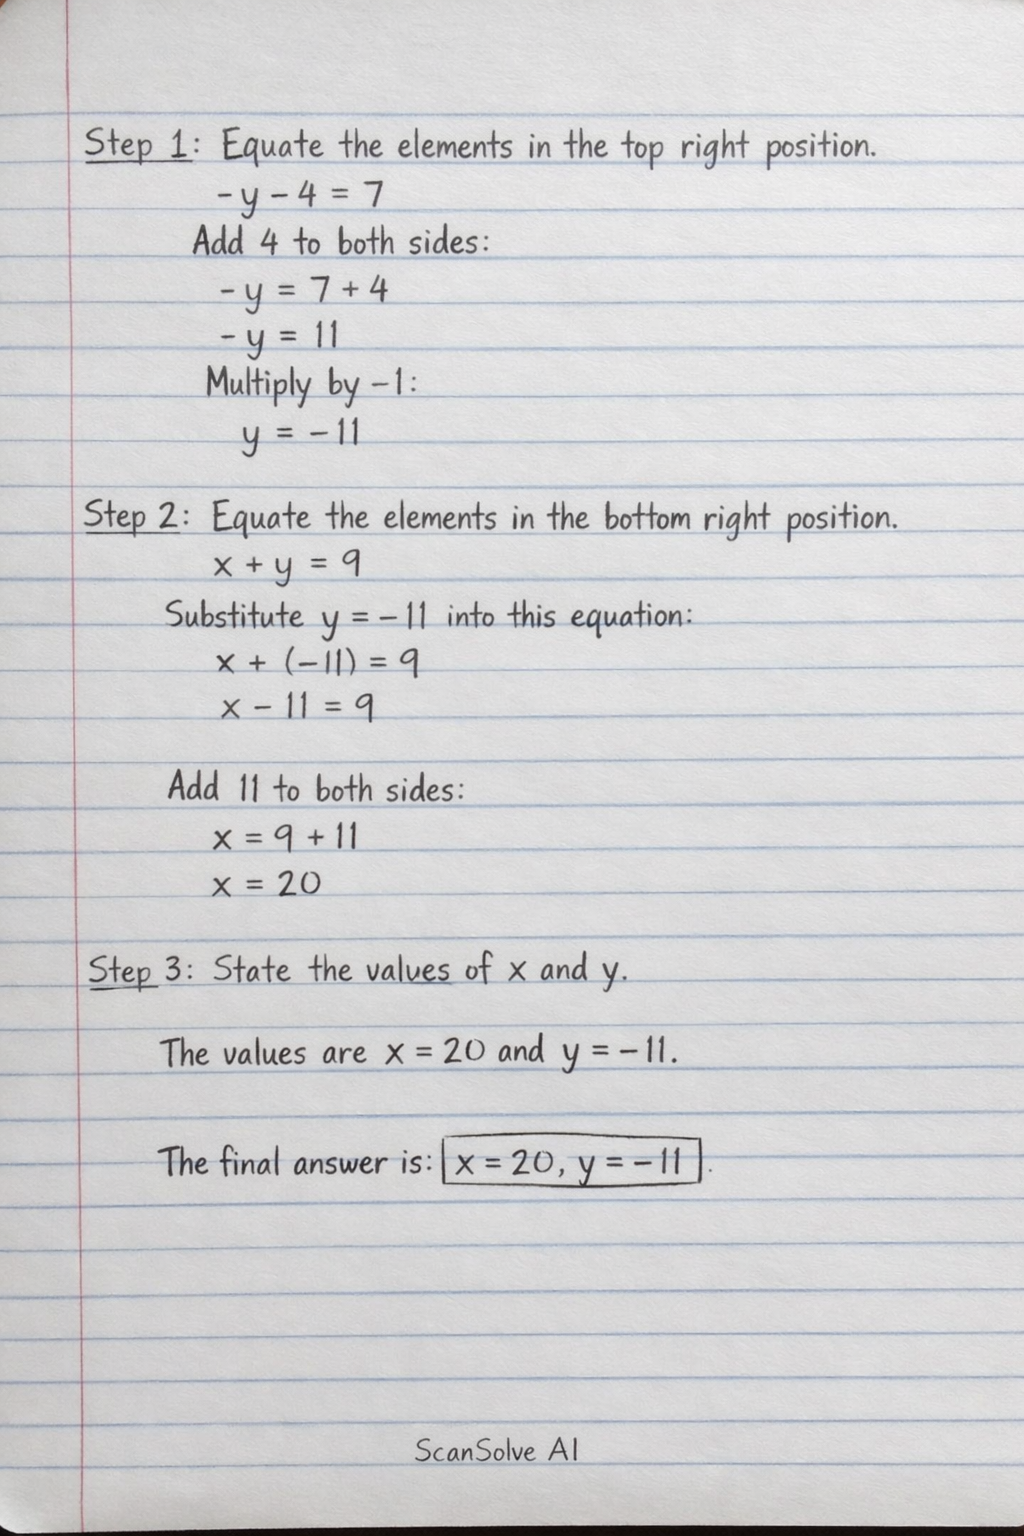 Step 1: Equate the elements in the top right position.
-y - 4 = 7
Add 4 to both sides:
-y = 7 + 4
-y = 11
Multiply by -1:
y = -11
Step 2: Equate the elements in the bottom right position.
x + y = 9
Substitute y = -11 into this equation:
x + (-11) = 9
x - 11 = 9
Add 11 to both sides:
x = 9 + 11
x = 20
Step 3: State the values of x and y.
The values are x = 20 and y = -11.
The final answer is: x = 20, y = -11.
ScanSolve AI